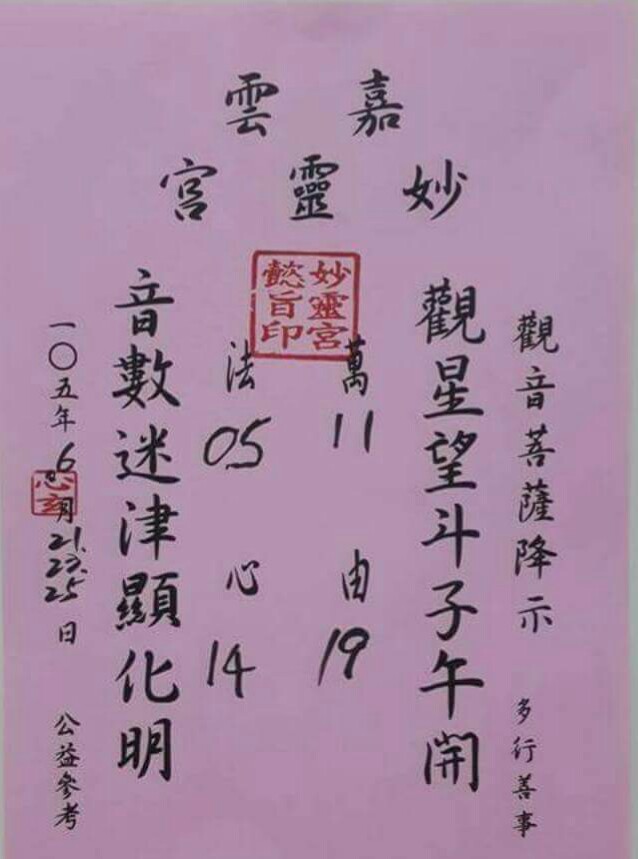 嘉雲
妙靈宮
觀音菩薩降示 多行善事
觀星望斗子午開
妙靈宮
懿旨印
萬 11 由 19
法 05 心 14
音數迷津顯化明
一〇五年6月21.23.25日 公益參考